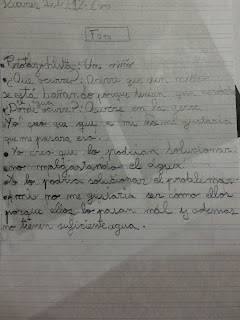 Foto
• Protagonista: Un niño
• ¿Que ocurre?: Ocurre que un niño
se está bañando porque tienen que
el agua
• ¿Donde ocurre?: Ocurre en la
Yo creo que que a mi no me gustaria
que me pasara eso.
• Yo creo que lo podrian solucionar
no malgastando el agua.
• Yo lo podria solucionar el problema
• A mi no me gustaria ser como ellos
porque ellos lo pasan mal y ademas
no tienen suficiente agua.